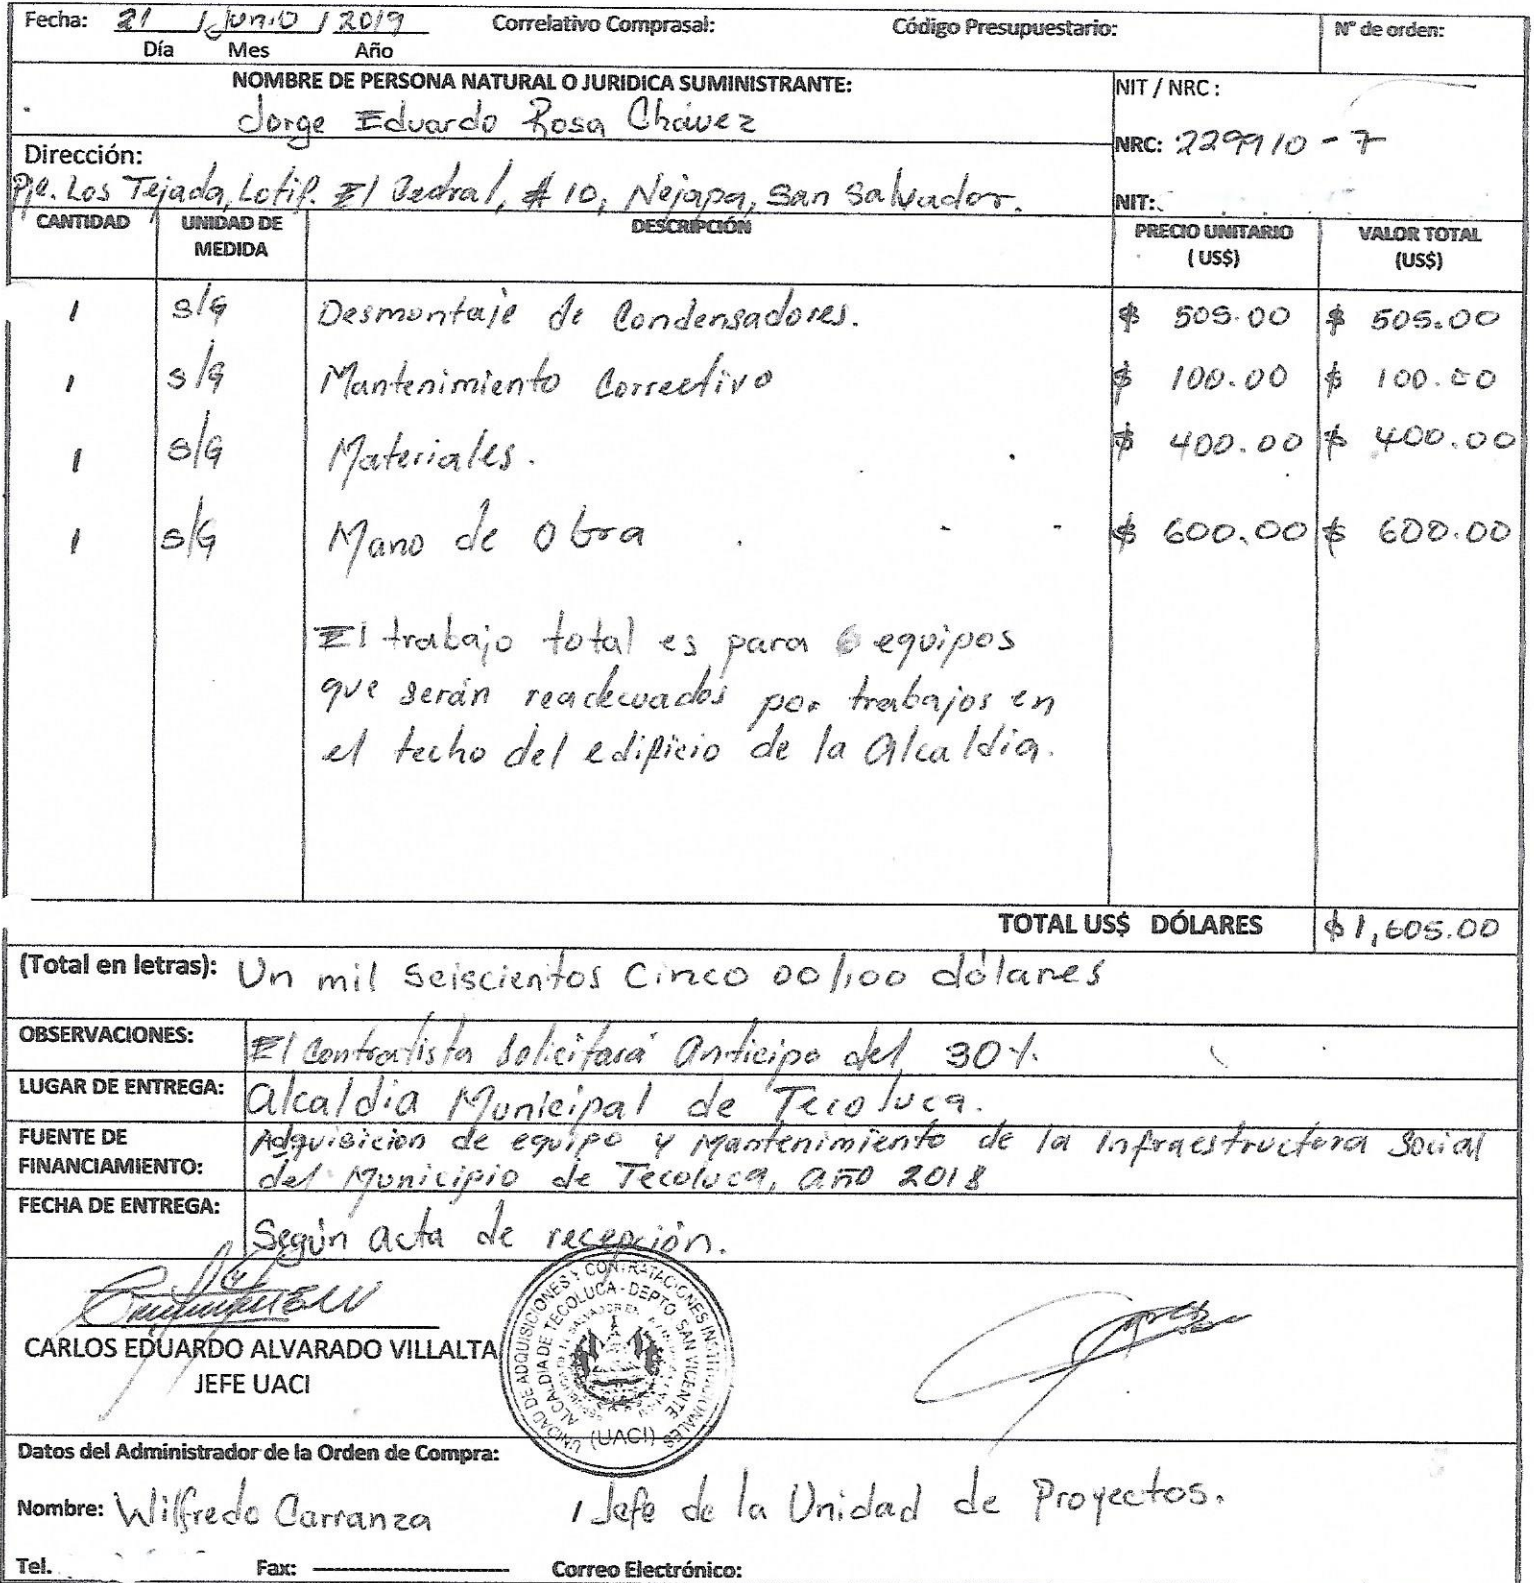 Fecha: 21 / Junio / 2019 Correlativo Comprasal: Código Presupuestario: N° de orden:
Día Mes Año
NOMBRE DE PERSONA NATURAL O JURIDICA SUMINISTRANTE: NIT / NRC :
Jorge Eduardo Rosa Chávez
NRC: 229910 - 7
Dirección:
Pje. Los Tejada, Lotif. El #10, Nejapa, San Salvador. NIT:
CANTIDAD UNIDAD DE MEDIDA DESCRIPCIÓN PRECIO UNITARIO ( US$) VALOR TOTAL (US$)
1 s/g Desmontaje de Condensadores. $ 505.00 $ 505.00
1 s/g Mantenimiento Correctivo $ 100.00 $ 100.00
1 s/g Materiales. $ 400.00 $ 400.00
1 s/g Mano de Obra $ 600.00 $ 600.00
El trabajo total es para 6 equipos
que serán readecuados por trabajos en
el techo del edificio de la Alcaldia.
TOTAL US$ DÓLARES $1,605.00
(Total en letras): Un mil Seiscientos Cinco 00/100 dólares
OBSERVACIONES: El Contratista Solicitará Anticipo del 30%.
LUGAR DE ENTREGA: Alcaldia Municipal de Tecoluca.
FUENTE DE FINANCIAMIENTO: Adquisicion de equipo y Mantenimiento de la Infraestructura Social
del Municipio de Tecoluca, año 2018
FECHA DE ENTREGA: Según acta de recepción.
CARLOS EDUARDO ALVARADO VILLALTA
JEFE UACI
UNIDAD DE ADQUISICIONES Y CONTRATACIONES INSTITUCIONALES
ALCALDIA DE TECOLUCA - DEPTO. SAN VICENTE
(UACI)
Datos del Administrador de la Orden de Compra:
Nombre: Wilfredo Carranza / Jefe de la Unidad de Proyectos.
Tel. Fax: Correo Electrónico: